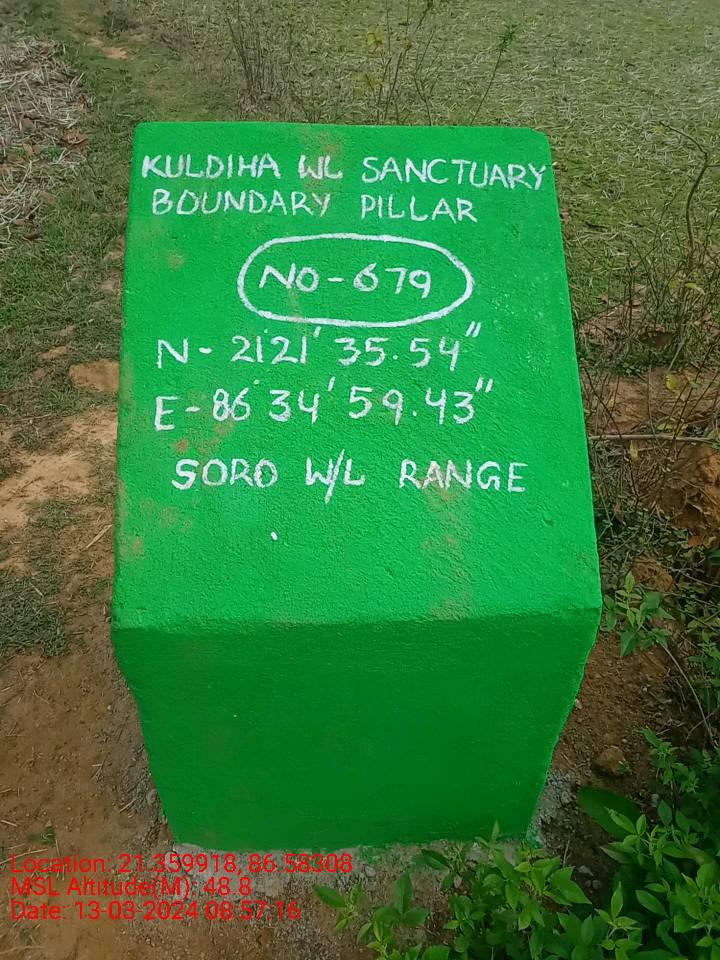 KULDIHA WL SANCTUARY
BOUNDARY PILLAR
NO-679
N- 21°21' 35.54"
E- 86°34' 59.43"
SORO W/L RANGE
Location: 21.359918, 86.58308
MSL Altitude(M): 48.8
Date: 13-03-2024 08:57:16